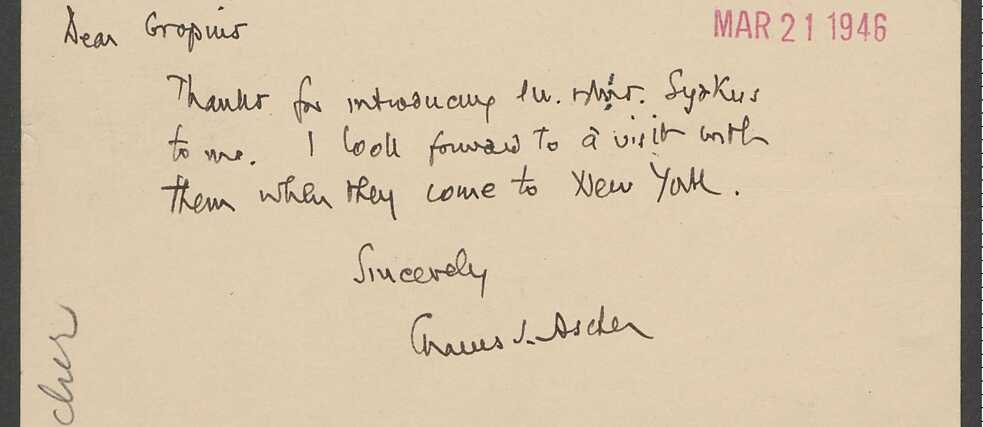 Dear Gropius
MAR 21 1946
Thanks for introducing Mr. & Mrs. Syrkus
to me. I look forward to a visit with
them when they come to New York.
Sincerely
Charles S. Ascher
cher